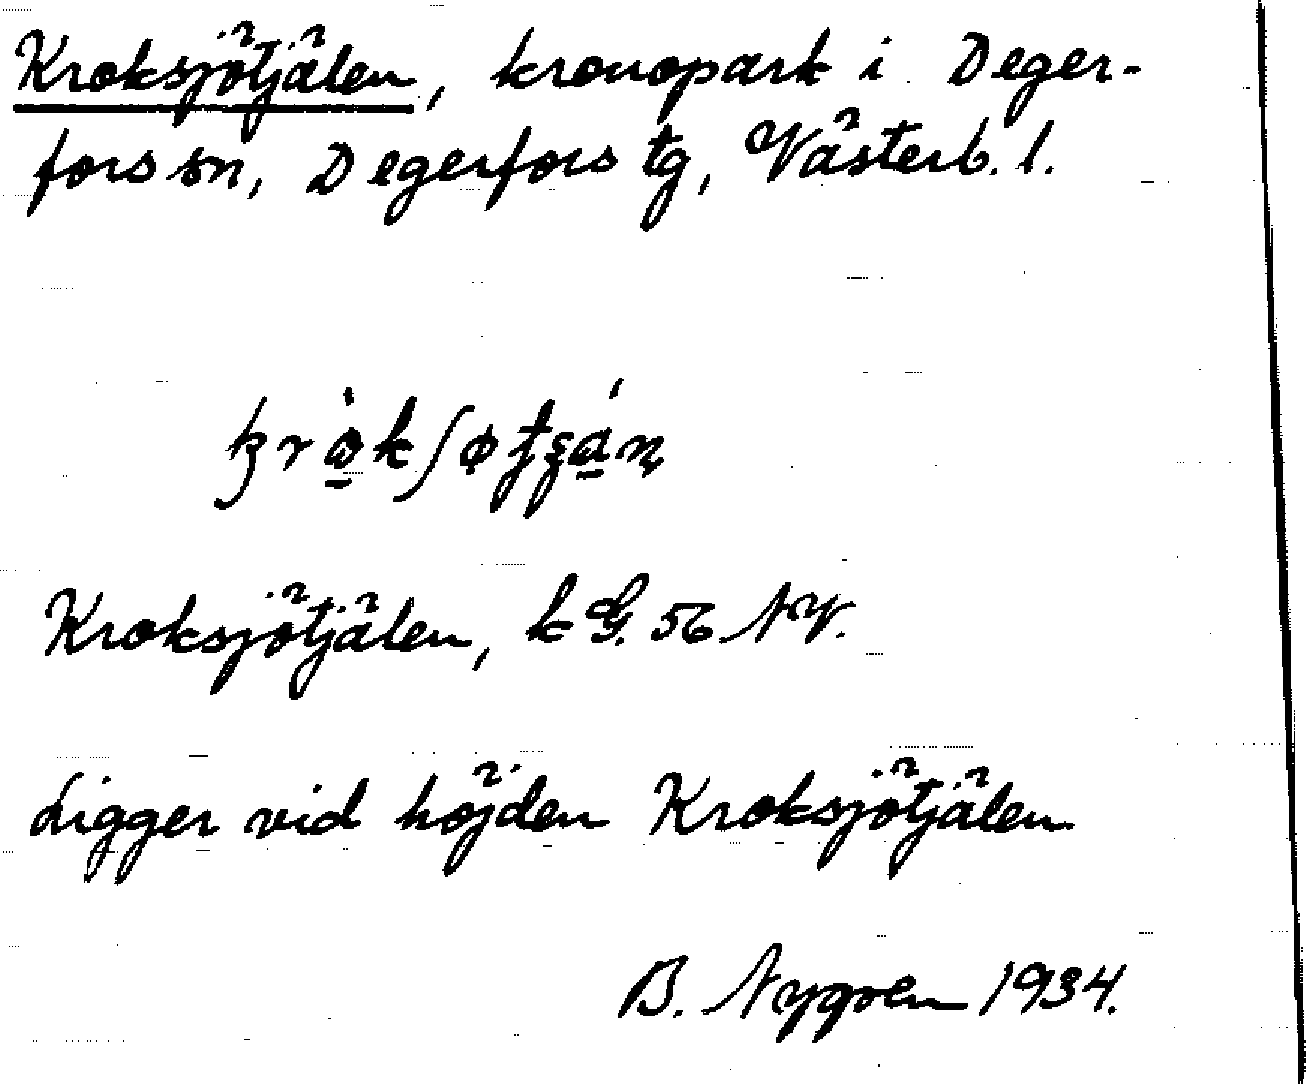 Kroksjötjälen, kronopark i Deger-
fors sn, Degerfors tg, Västerb. l.
Kroksjötjälen, kG. 56 NV.
Ligger vid höjden Kroksjötjälen
B. Nygren 1934.